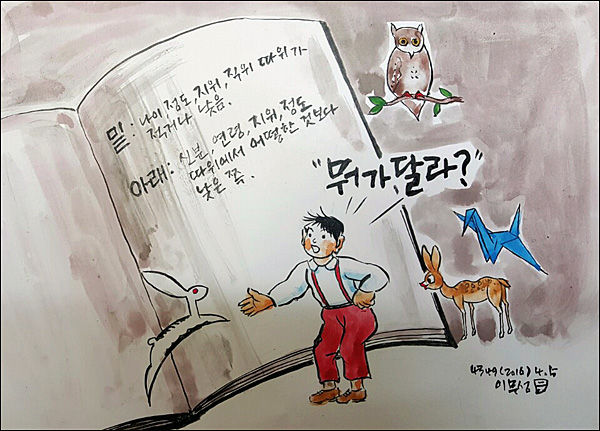 밑: 나이, 정도, 지위, 직위 따위가
적거나 낮음.
아래: 신분, 연령, 지위, 정도
따위에서 어떻한 것보다
낮은 쪽.
"뭐가 달라?"
4349(2016) 4.5
이무성